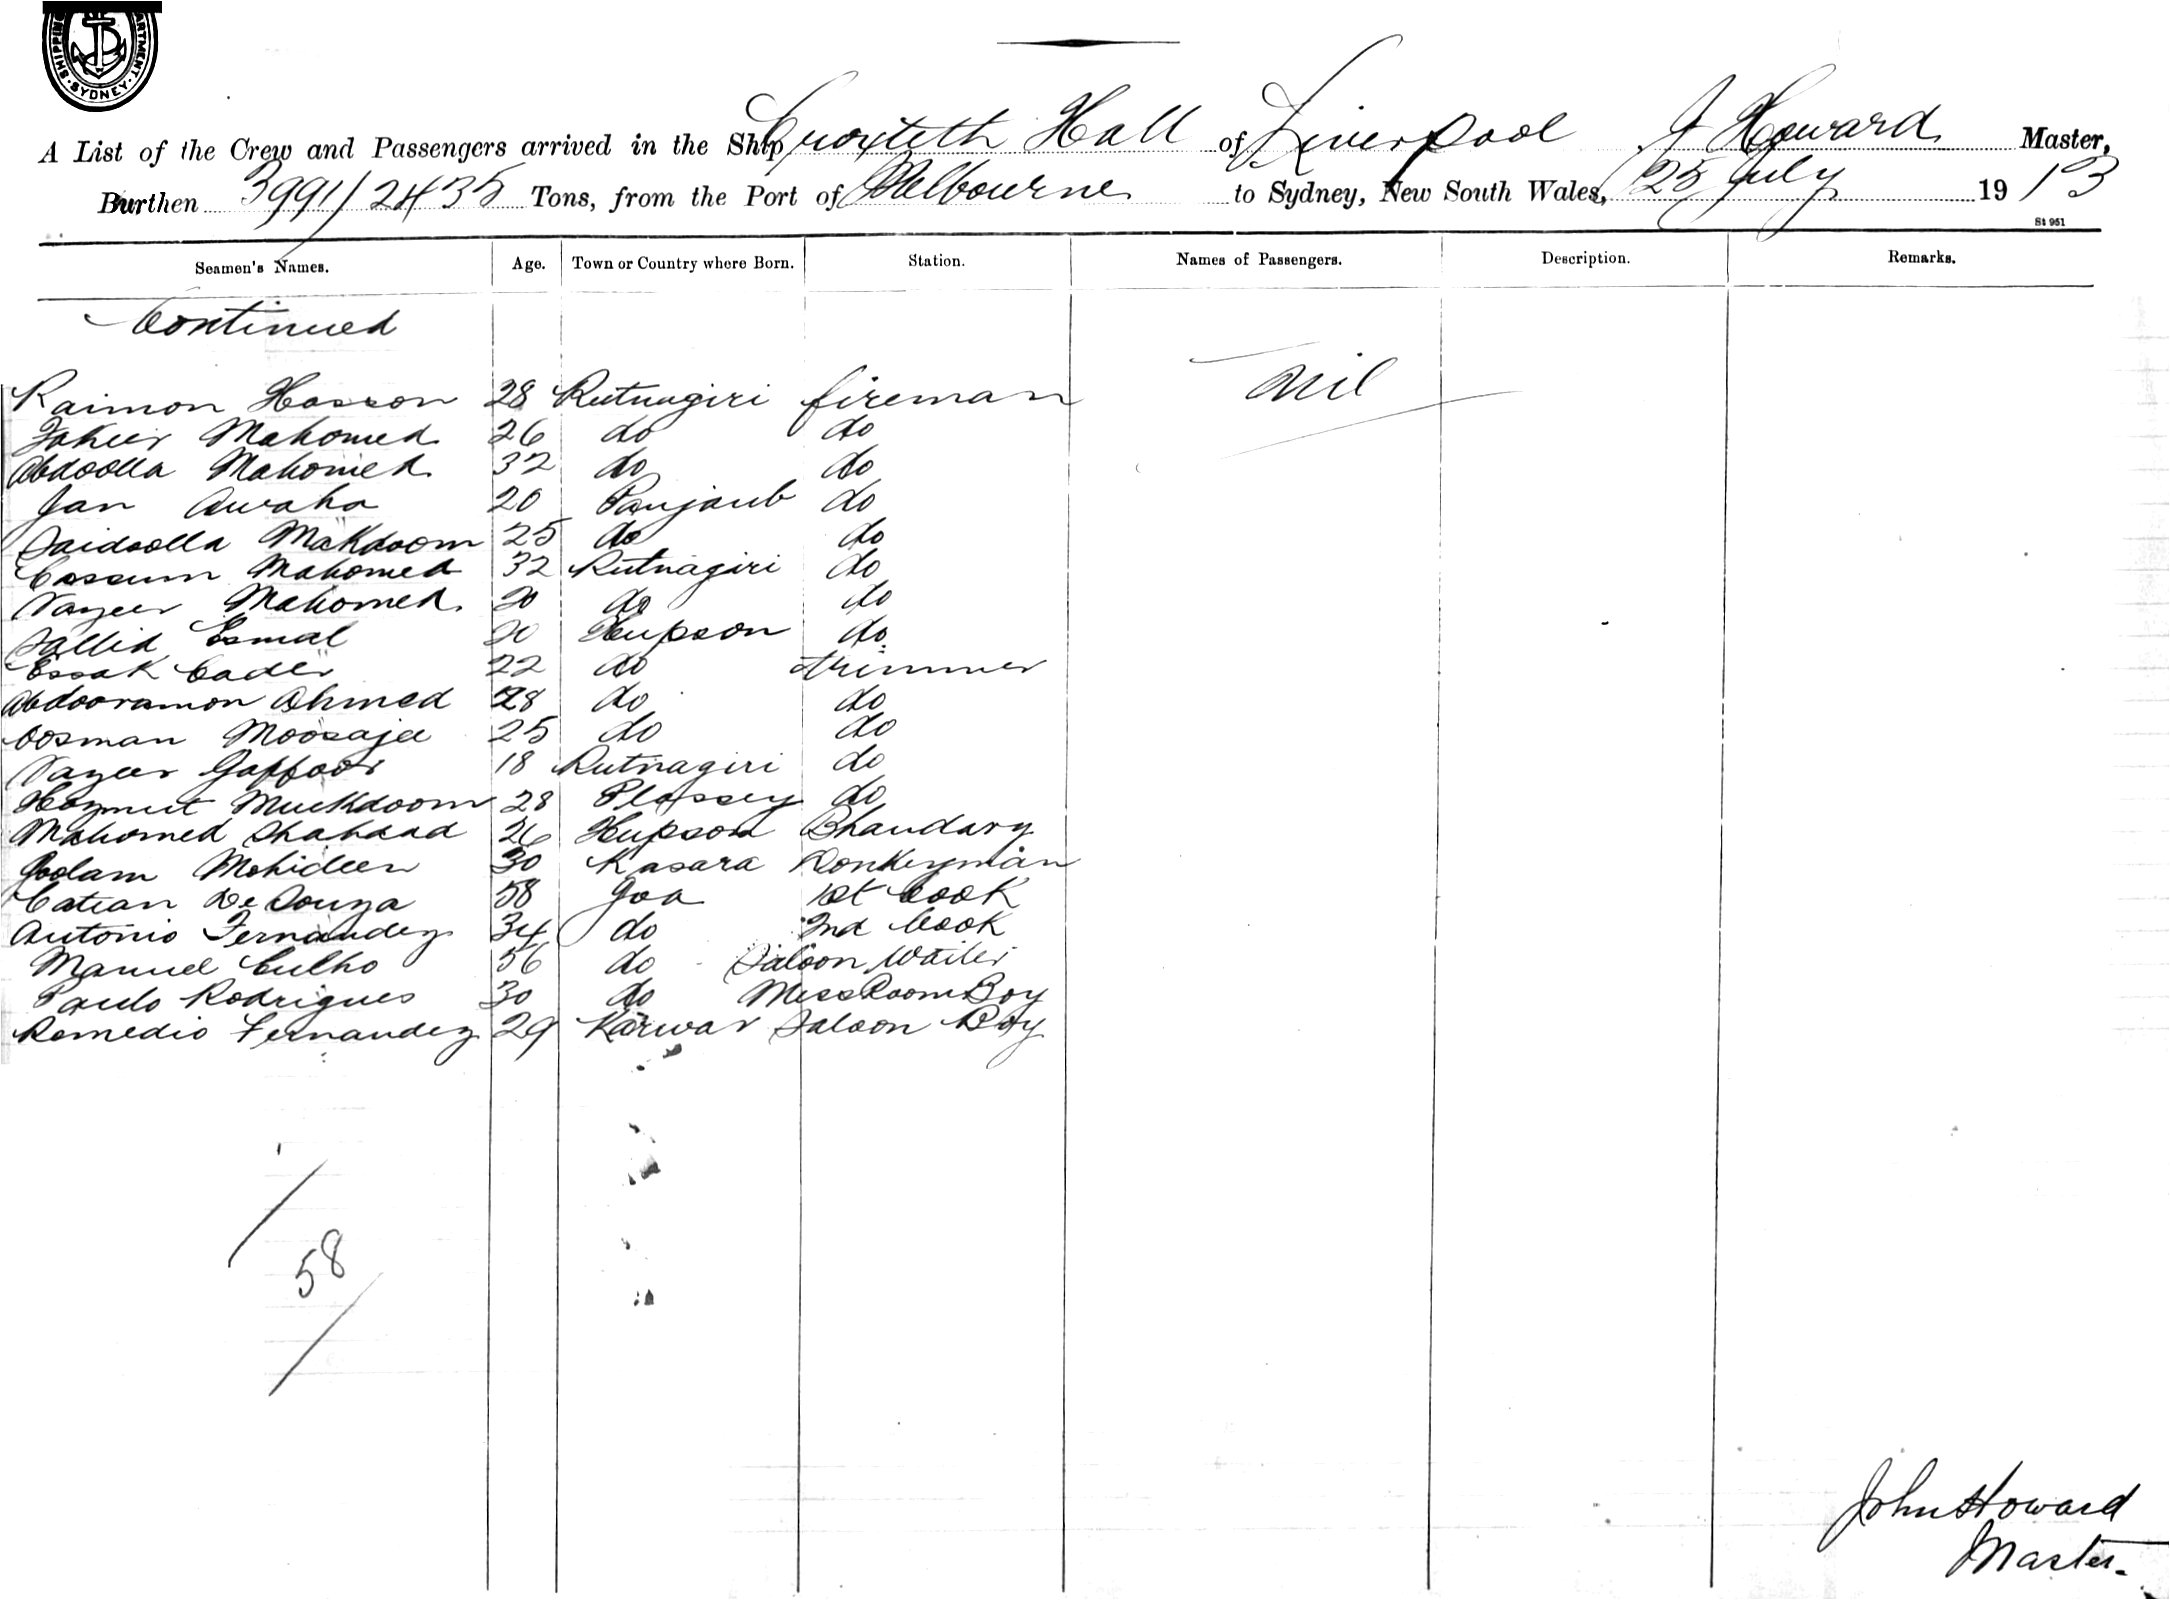 SHIPPING DEPARTMENT · SYDNEY ·
A List of the Crew and Passengers arrived in the Ship Croxteth Hall of Liverpool J Howard Master,
Burthen 3991/2435 Tons, from the Port of Melbourne to Sydney, New South Wales, 25 July 1913
St 951
Seamen's Names. Age. Town or Country where Born. Station. Names of Passengers. Description. Remarks.
Continued
Raimon Hosson 28 Rutnagiri fireman Nil
Fakeer Mahomed 26 do do
Abdoolla Mahomed 32 do do
Jan Awaha 20 Punjaub do
Saidoolla Makdoom 25 do do
Cossum Mahomed 32 Rutnagiri do
Nazeer Mahomed 20 do do
Sallid Esmal 20 Hupson do
Essak Cader 22 do trimmer
Abdooramon Ahmed 28 do do
Oosman Moosajee 25 do do
Nazeer Gaffoor 18 Rutnagiri do
Hozmut Muckdoom 28 Plassey do
Mahomed Shahdad 26 Hupson Bhandary
Goolam Mohideen 30 Kasara Donkeyman
Catean De Souza 58 Goa 1st Cook
Antonio Fernandez 34 do 2nd Cook
Manuel Culho 56 do Saloon Waiter
Paulo Rodrigues 30 do Mess Room Boy
Remedio Fernandez 29 Karwar Saloon Boy
58
John Howard
Master.